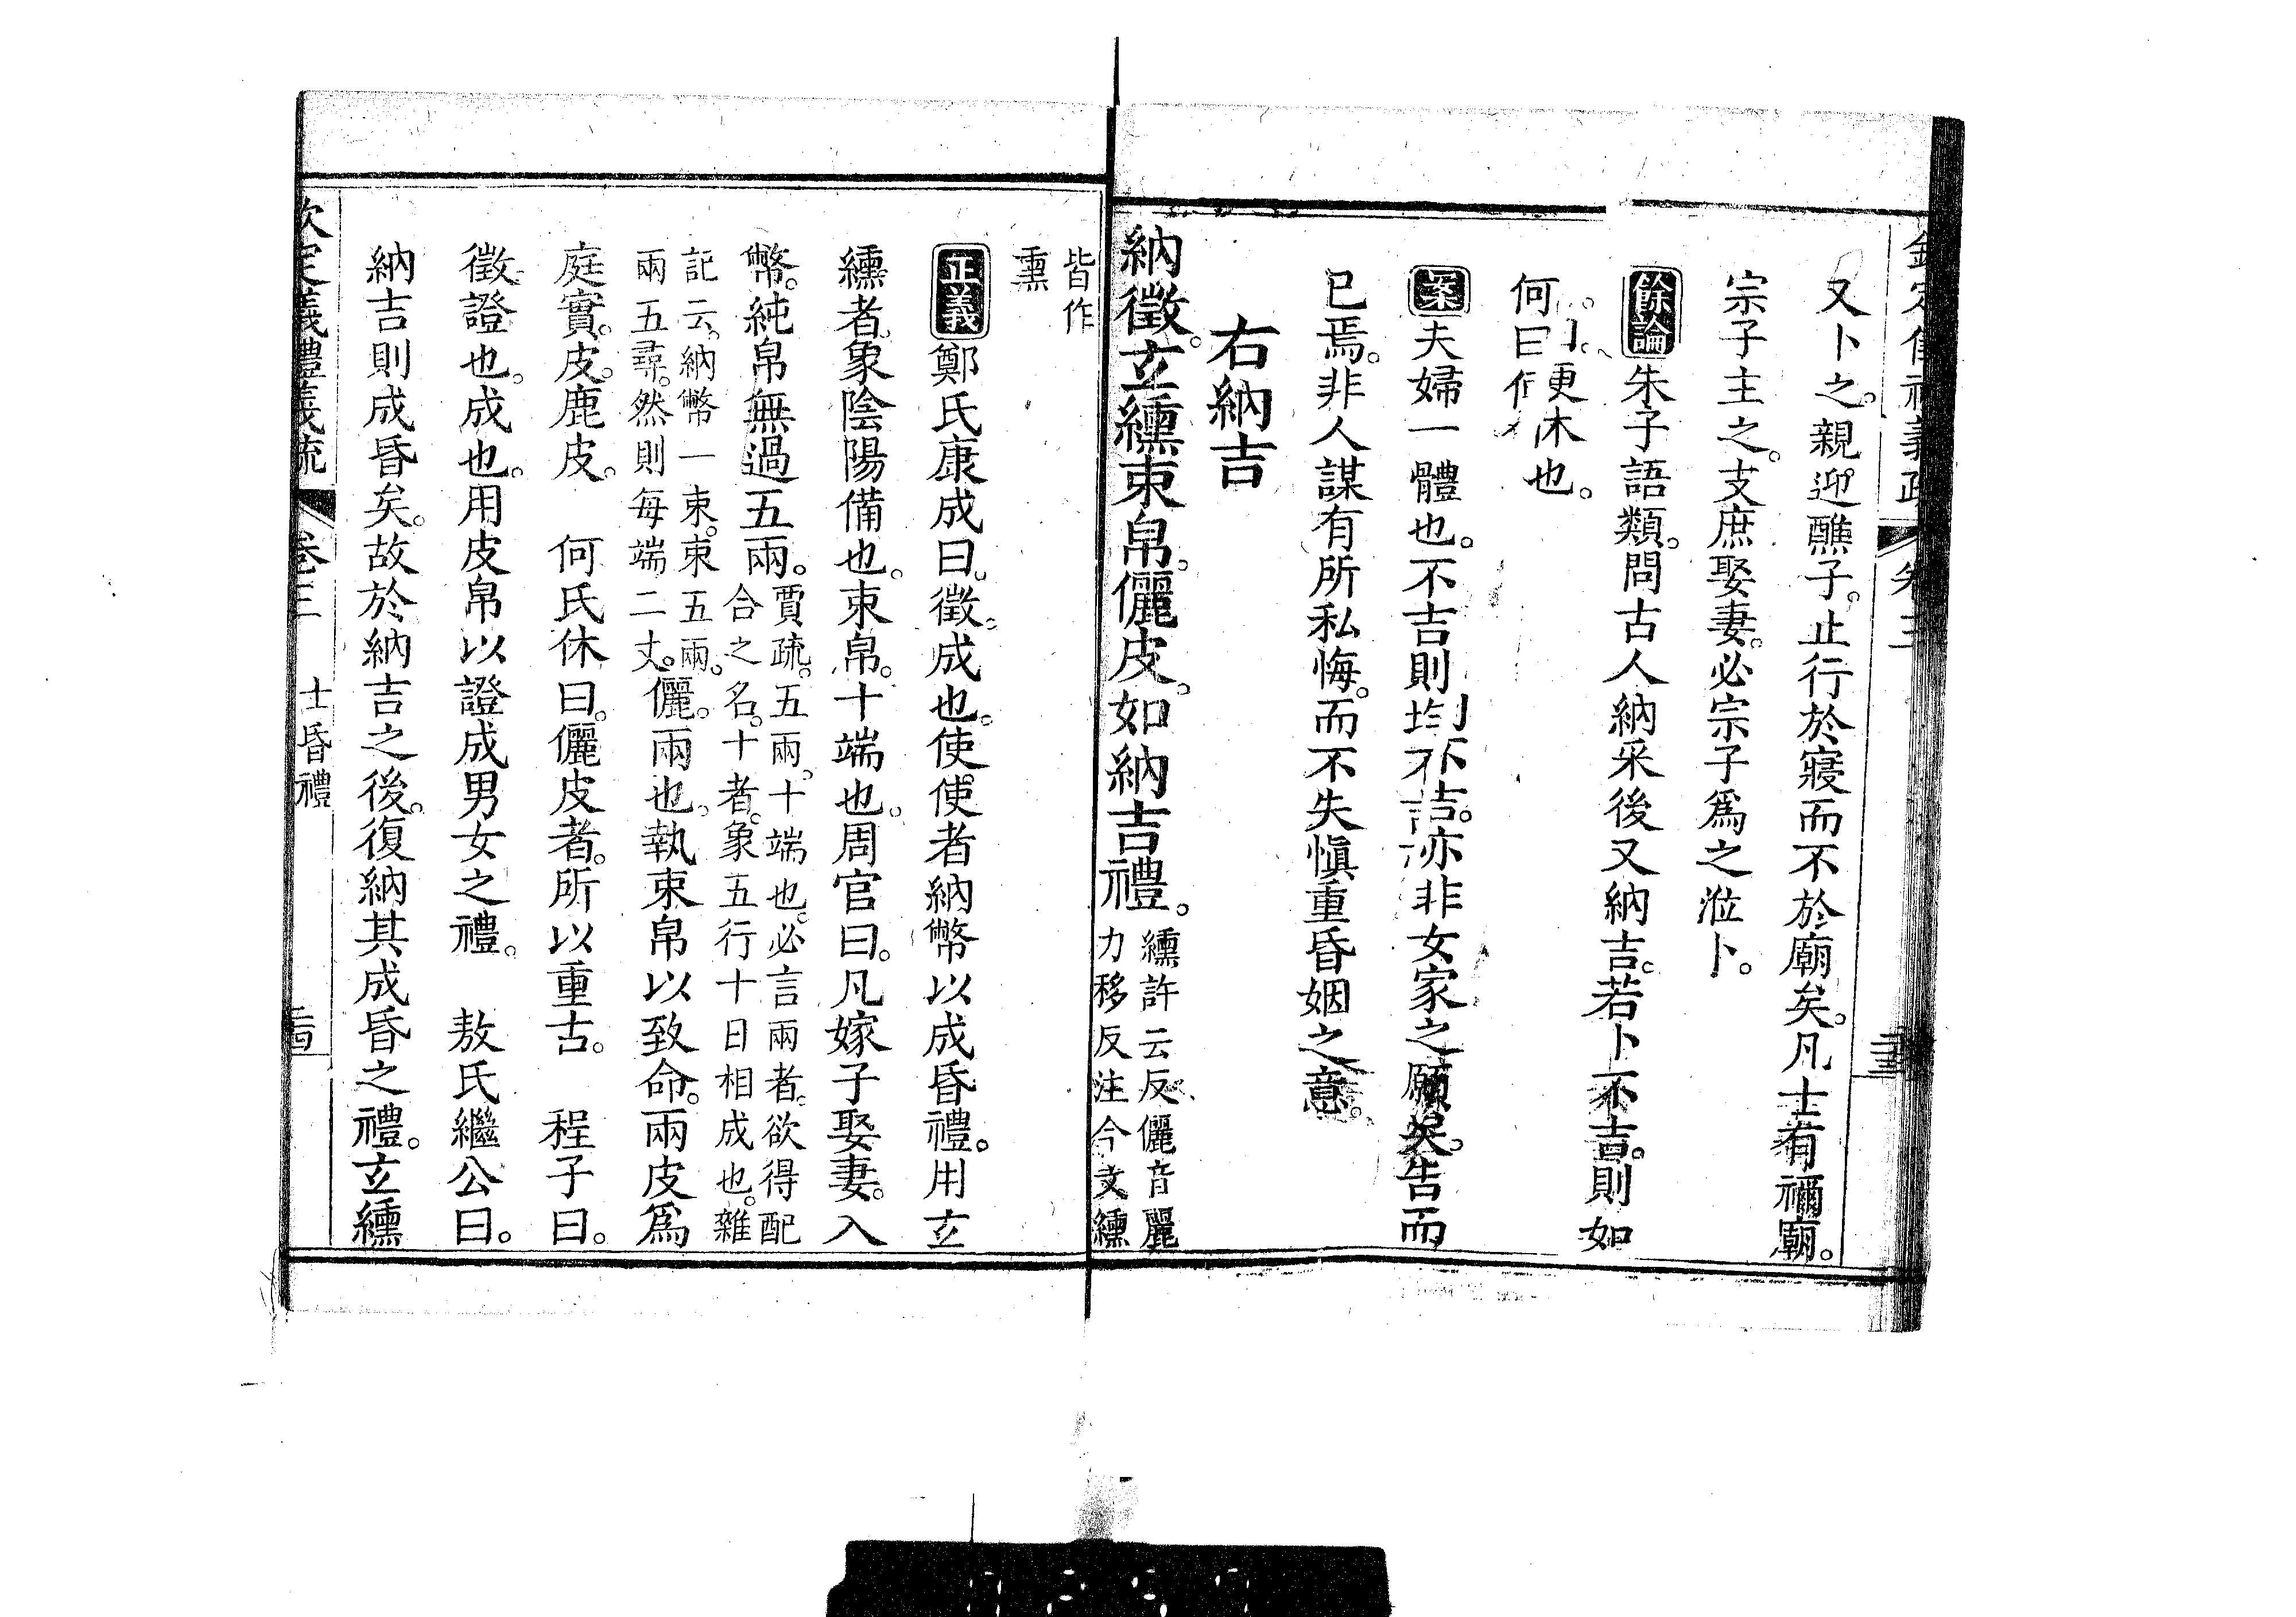 又卜之。親迎醮子。止行於寢而不於廟矣。凡士有禰廟。
宗子主之。支庶娶妻。必宗子爲之涖卜。
餘論朱子語類。問古人納采後又納吉。若卜不吉。則如
何曰便休也。
案夫婦一體也。不吉則均不吉。亦非女家之願矣。告而
已焉。非人謀有所私悔。而不失愼重昏姻之意。
右納吉
納徵。玄纁束帛。儷皮。如納吉禮。纁許云反儷音麗
力移反注今文纁
皆作
熏
正義鄭氏康成曰。徵。成也。使使者納幣以成昏禮。用玄
纁者。象陰陽備也。束帛。十端也。周官曰。凡嫁子娶妻。入
幣。純帛無過五兩。賈疏。五兩。十端也。必言兩者。欲得配
合之名。十者。象五行十日相成也。雜
記云。納幣一束。束五兩。
兩五尋。然則每端二丈。儷。兩也。執束帛以致命。兩皮爲
庭實。皮。鹿皮。　何氏休曰。儷皮者。所以重古。　程子曰。
徵證也。成也。用皮帛以證成男女之禮。　敖氏繼公曰。
納吉則成昏矣。故於納吉之後。復納其成昏之禮。玄纁
欽定儀禮義疏　卷三　士昏禮